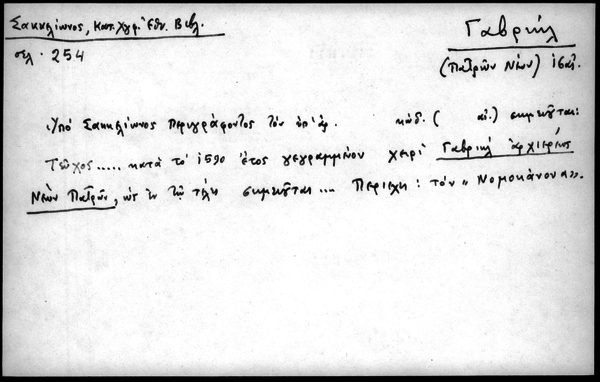 Σακκελίωνος, Κατ. Χγφ. Ἐθν. Βιβλ.
σελ. 254
Γαβριήλ
(Πατρῶν Νέων)
Ὑπό Σακκελίωνος περιγράφοντος τόν ὑπ' ἀρ. κώδ. ( αἰ.) σημειοῦται:
Τεῦχος..... κατά τό 1590 ἔτος γεγραμμένον χειρί Γαβριήλ ἀρχιερέως
Νέων Πατρῶν, ὡς ἐν τῷ τέλει σημειοῦται... Περιέχει: τόν "Νομοκάνονα".